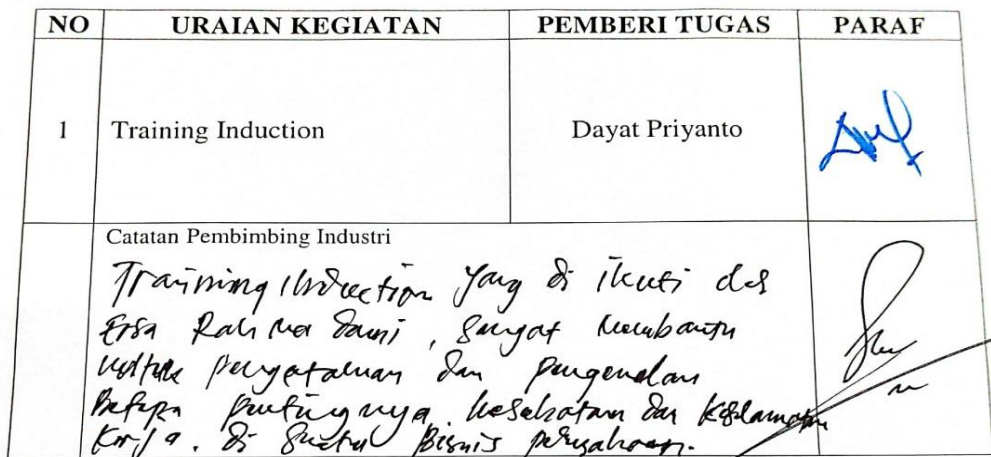 NO URAIAN KEGIATAN PEMBERI TUGAS PARAF
1 Training Induction Dayat Priyanto
Catatan Pembimbing Industri
Training Induction yang di ikuti oleh
Ersa Rahma Dani, sangat membantu
untuk pengetahuan dan pengenalan
Betapa pentingnya kesehatan dan Keselamatan
Kerja. di suatu Bisnis perusahaan.